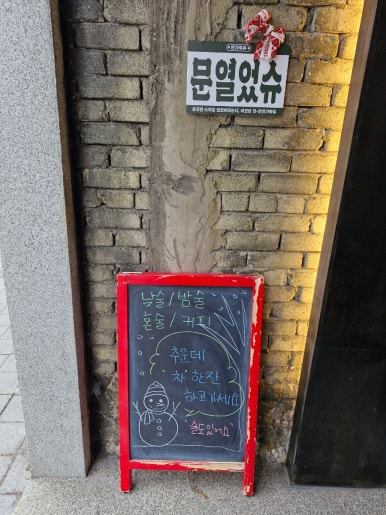 문열었슈
낮술 / 밤술
혼술 / 커피
추운데
차 한잔
하고가세요
술도있어요